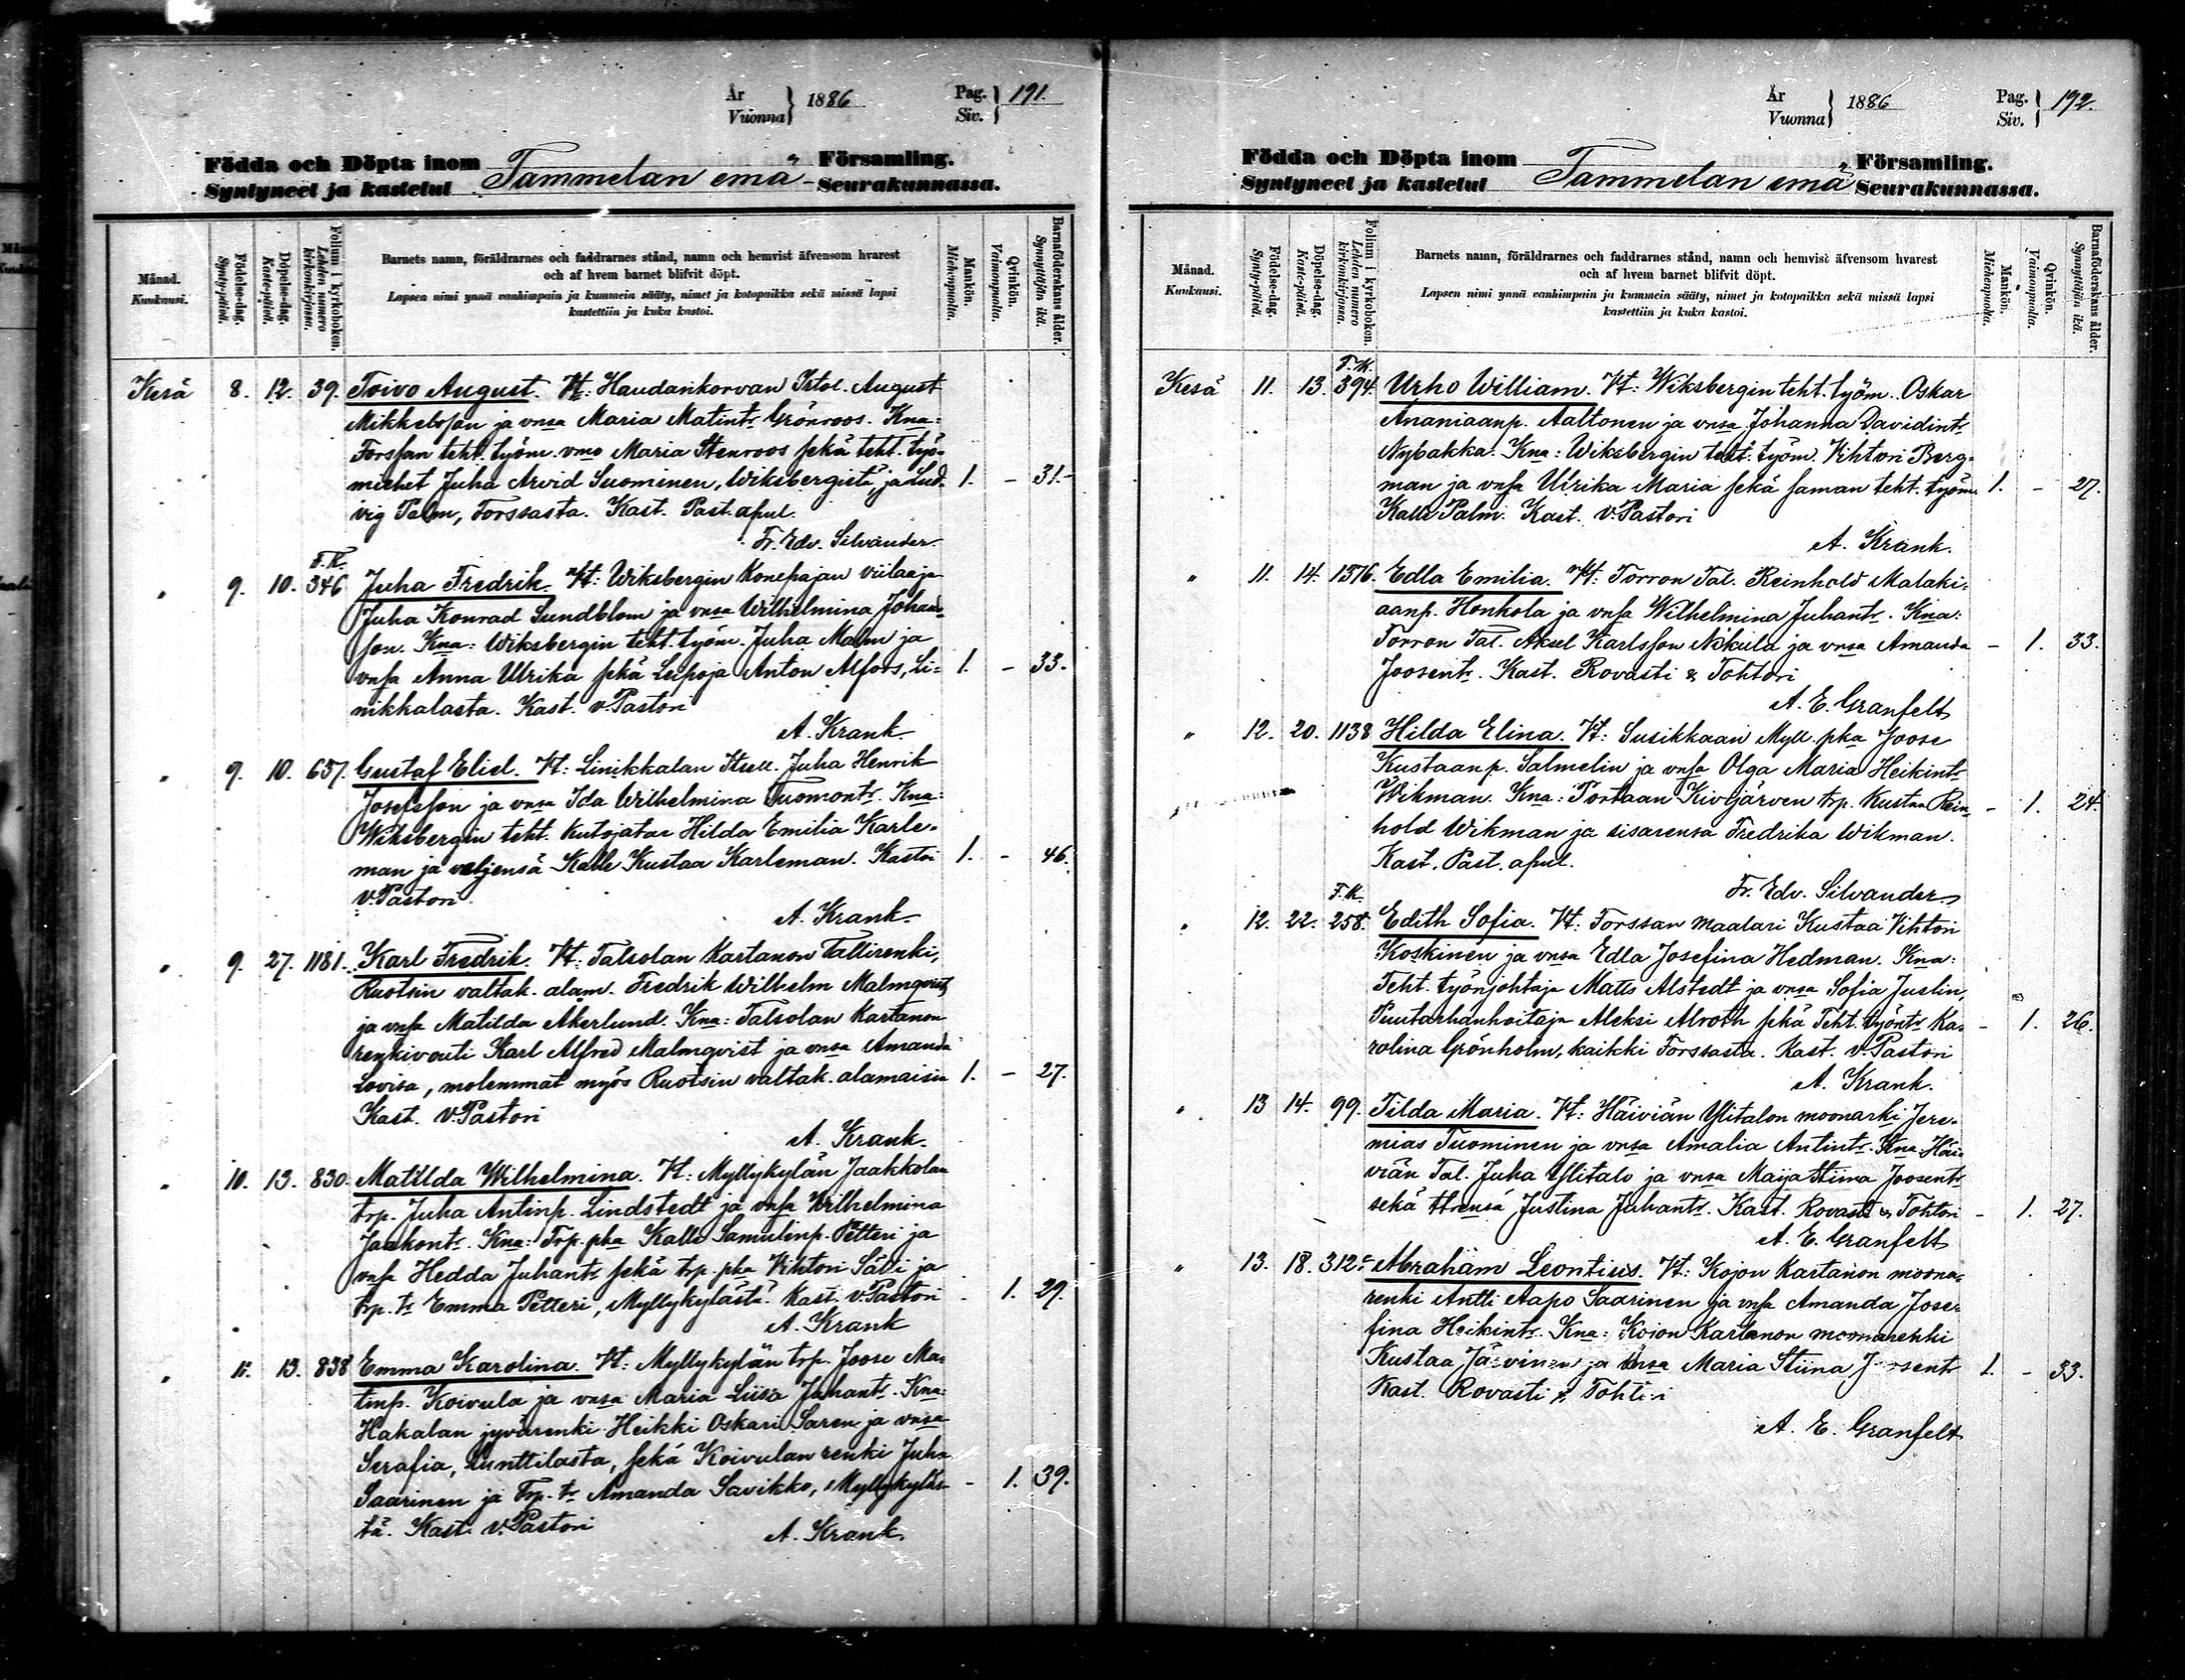 År
Vuonna } 1886
Pag.
Siv. } 191.
Födda och Döpta inom
Syntyneet ja kastetut
Tammelan emä-
Församling.
Seurakunnassa.
Månad.
Kuukausi.
Födelse-dag.
Synty-päivä.
Döpelse-dag.
Kaste-päivä.
Folium i kyrkoboken.
Lehden numero kirkonkirjassa.
Barnets namn, föräldrarnes och faddrarnes stånd, namn och hemvist äfvensom hvarest
och af hvem barnet blifvit döpt.
Lapsen nimi ynnä vanhimpain ja kummein sääty, nimet ja kotopaikka sekä missä lapsi
kastettiin ja kuka kastoi.
Mankön.
Miehenpuolta.
Qvinkön.
Vaimonpuolta.
Barnaföderskans ålder.
Synnyttäjän ikä.
Kesä 8. 12. 39. Toivo August. Vt: Haudankorvan Itsl. August
Mikkelsson ja vnsa Maria Matint. Grönroos. Kna:
Forssan teht. työm. vmo Maria Stenroos sekä teht. työ-
miehet Juha Arvid Suominen, Wiksbergistä, ja Lud- 1. - 31.
vig Palm, Forssasta. Kast. Past. apul.
Fr. Edv. Silvander.
F.K.
" 9. 10. 346 Juha Fredrik. Vt: Wiksbergin Konepajan viilaaja
Juha Konrad Sundblom ja vnsa Wilhelmina Johans-
son. Kna: Wiksbergin teht. työm. Juha Malm ja
vnsa Anna Ulrika sekä Leipoja Anton Alfors, Li- 1. - 33.
nikkalasta. Kast. v. Pastori
A. Krank.
" 9. 10. 657. Gustaf Eliel. Vt: Linikkalan Itsell. Juha Henrik
Josefsson ja vnsa Ida Wilhelmina Tuomont. Kna:
Wiksbergin teht. kutojatar Hilda Emilia Karle-
man ja veljensä Kalle Kustaa Karleman. Kastoi 1. - 46.
v. Pastori
A. Krank.
" 9. 27. 1181. Karl Fredrik. Vt: Talsolan Kartanon Tallirenki,
Ruotsin valtak. alam. Fredrik Wilhelm Malmqvist,
ja vnsa Matilda Åkerlund. Kna: Talsolan Kartanon
renkivouti Karl Alfred Malmqvist ja vnsa Amanda
Lovisa, molemmat myös Ruotsin valtak. alamaisia 1. - 27.
Kast. v. Pastori
A. Krank.
" 10. 13. 830. Matilda Wilhelmina. Vt: Myllykylän Jaakkolan
trp. Juha Antinp. Lindstedt ja vnsa Wilhelmina
Jaakont. Kna: Trp. pka Kalle Samulinp. Petteri ja
vnsa Hedda Juhant. sekä trp. pka Vihtori Säli ja
trp. tr Emma Petteri, Myllykylästä. Kast. v. Pastori - 1. 29.
A. Krank
" 11. 13. 838 Emma Karolina. Vt: Myllykylän trp. Joose Ma-
tinp. Koivula ja vnsa Maria Liisa Juhant. Kna:
Hakalan jyvärenki Heikki Oskari Saren ja vnsa
Serafia, Lunttilasta, sekä Koivulan renki Juha
Saarinen ja Trp. tr Amanda Savikko, Myllykyläs- - 1. 39.
tä. Kast. v. Pastori
A. Krank.
År
Vuonna } 1886
Pag.
Siv. } 192.
Födda och Döpta inom
Syntyneet ja kastetut
Tammelan emä
Församling.
Seurakunnassa.
Månad.
Kuukausi.
Födelse-dag.
Synty-päivä.
Döpelse-dag.
Kaste-päivä.
Folium i kyrkoboken.
Lehden numero kirkonkirjassa.
Barnets namn, föräldrarnes och faddrarnes stånd, namn och hemvist äfvensom hvarest
och af hvem barnet blifvit döpt.
Lapsen nimi ynnä vanhimpain ja kummein sääty, nimet ja kotopaikka sekä missä lapsi
kastettiin ja kuka kastoi.
Mankön.
Miehenpuolta.
Qvinkön.
Vaimonpuolta.
Barnaföderskans ålder.
Synnyttäjän ikä.
F.K.
Kesä 11. 13. 394. Urho William. Vt: Wiksbergin teht. työm. Oskar
Ananiaanp. Aaltonen ja vnsa Johanna Davidint.
Nybakka. Kna: Wiksbergin teht. työm. Vihtori Berg-
man ja vnsa Ulrika Maria sekä saman teht. työm. 1. - 27.
Kalle Palm. Kast. v. Pastori
A. Krank.
" 11. 14. 1376. Edla Emilia. Vt: Torron Tal. Reinhold Malaki-
aanp. Honkola ja vnsa Wilhelmina Juhant. Kna:
Torron Tal. Aksel Karlsson Nikula ja vnsa Amanda - 1. 33.
Joosent. Kast. Rovasti & Tohtori
A. E. Granfelt
" 12. 20. 1138 Hilda Elina. Vt: Susikkaan Myll. pka Joose
Kustaanp. Salmelin ja vnsa Olga Maria Heikint.
Wikman. Kna: Portaan Kivijärven trp. Kustaa Rein- - 1. 24.
hold Wikman ja sisarensa Fredrika Wikman.
Kast. Past. apul.
Fr. Edv. Silvander
F.K.
" 12. 22. 258. Edith Sofia. Vt: Forssan maalari Kustaa Vihtori
Koskinen ja vnsa Edla Josefina Hedman. Kna:
Teht. työnjohtaja Matts Alstedt ja vnsa Sofia Juslin,
Puutarhanhoitaja Aleksi Alroth sekä Teht. työnt. Ka- - 1. 26.
rolina Grönholm, kaikki Forssasta. Kast. v. Pastori
A. Krank.
" 13 14. 99. Tilda Maria. Vt: Häiviän Ylitalon moonarki Jere-
mias Tuominen ja vnsa Amalia Antint. Kna: Häi-
viän Tal. Juha Ylitalo ja vnsa Maija Stiina Joosent.
sekä ttrensä Justina Juhant. Kast. Rovasti & Tohtori - 1. 27.
A. E. Granfelt
" 13. 18. 312. Abraham Leontius. Vt: Kojon Kartanon moona-
renki Antti Aapo Saarinen ja vnsa Amanda Jose-
fina Heikint. Kna: Kojon Kartanon moonarenki
Kustaa Järvinen ja vnsa Maria Stiina Joosent. 1. - 33.
Kast. Rovasti & Tohtori
A. E. Granfelt